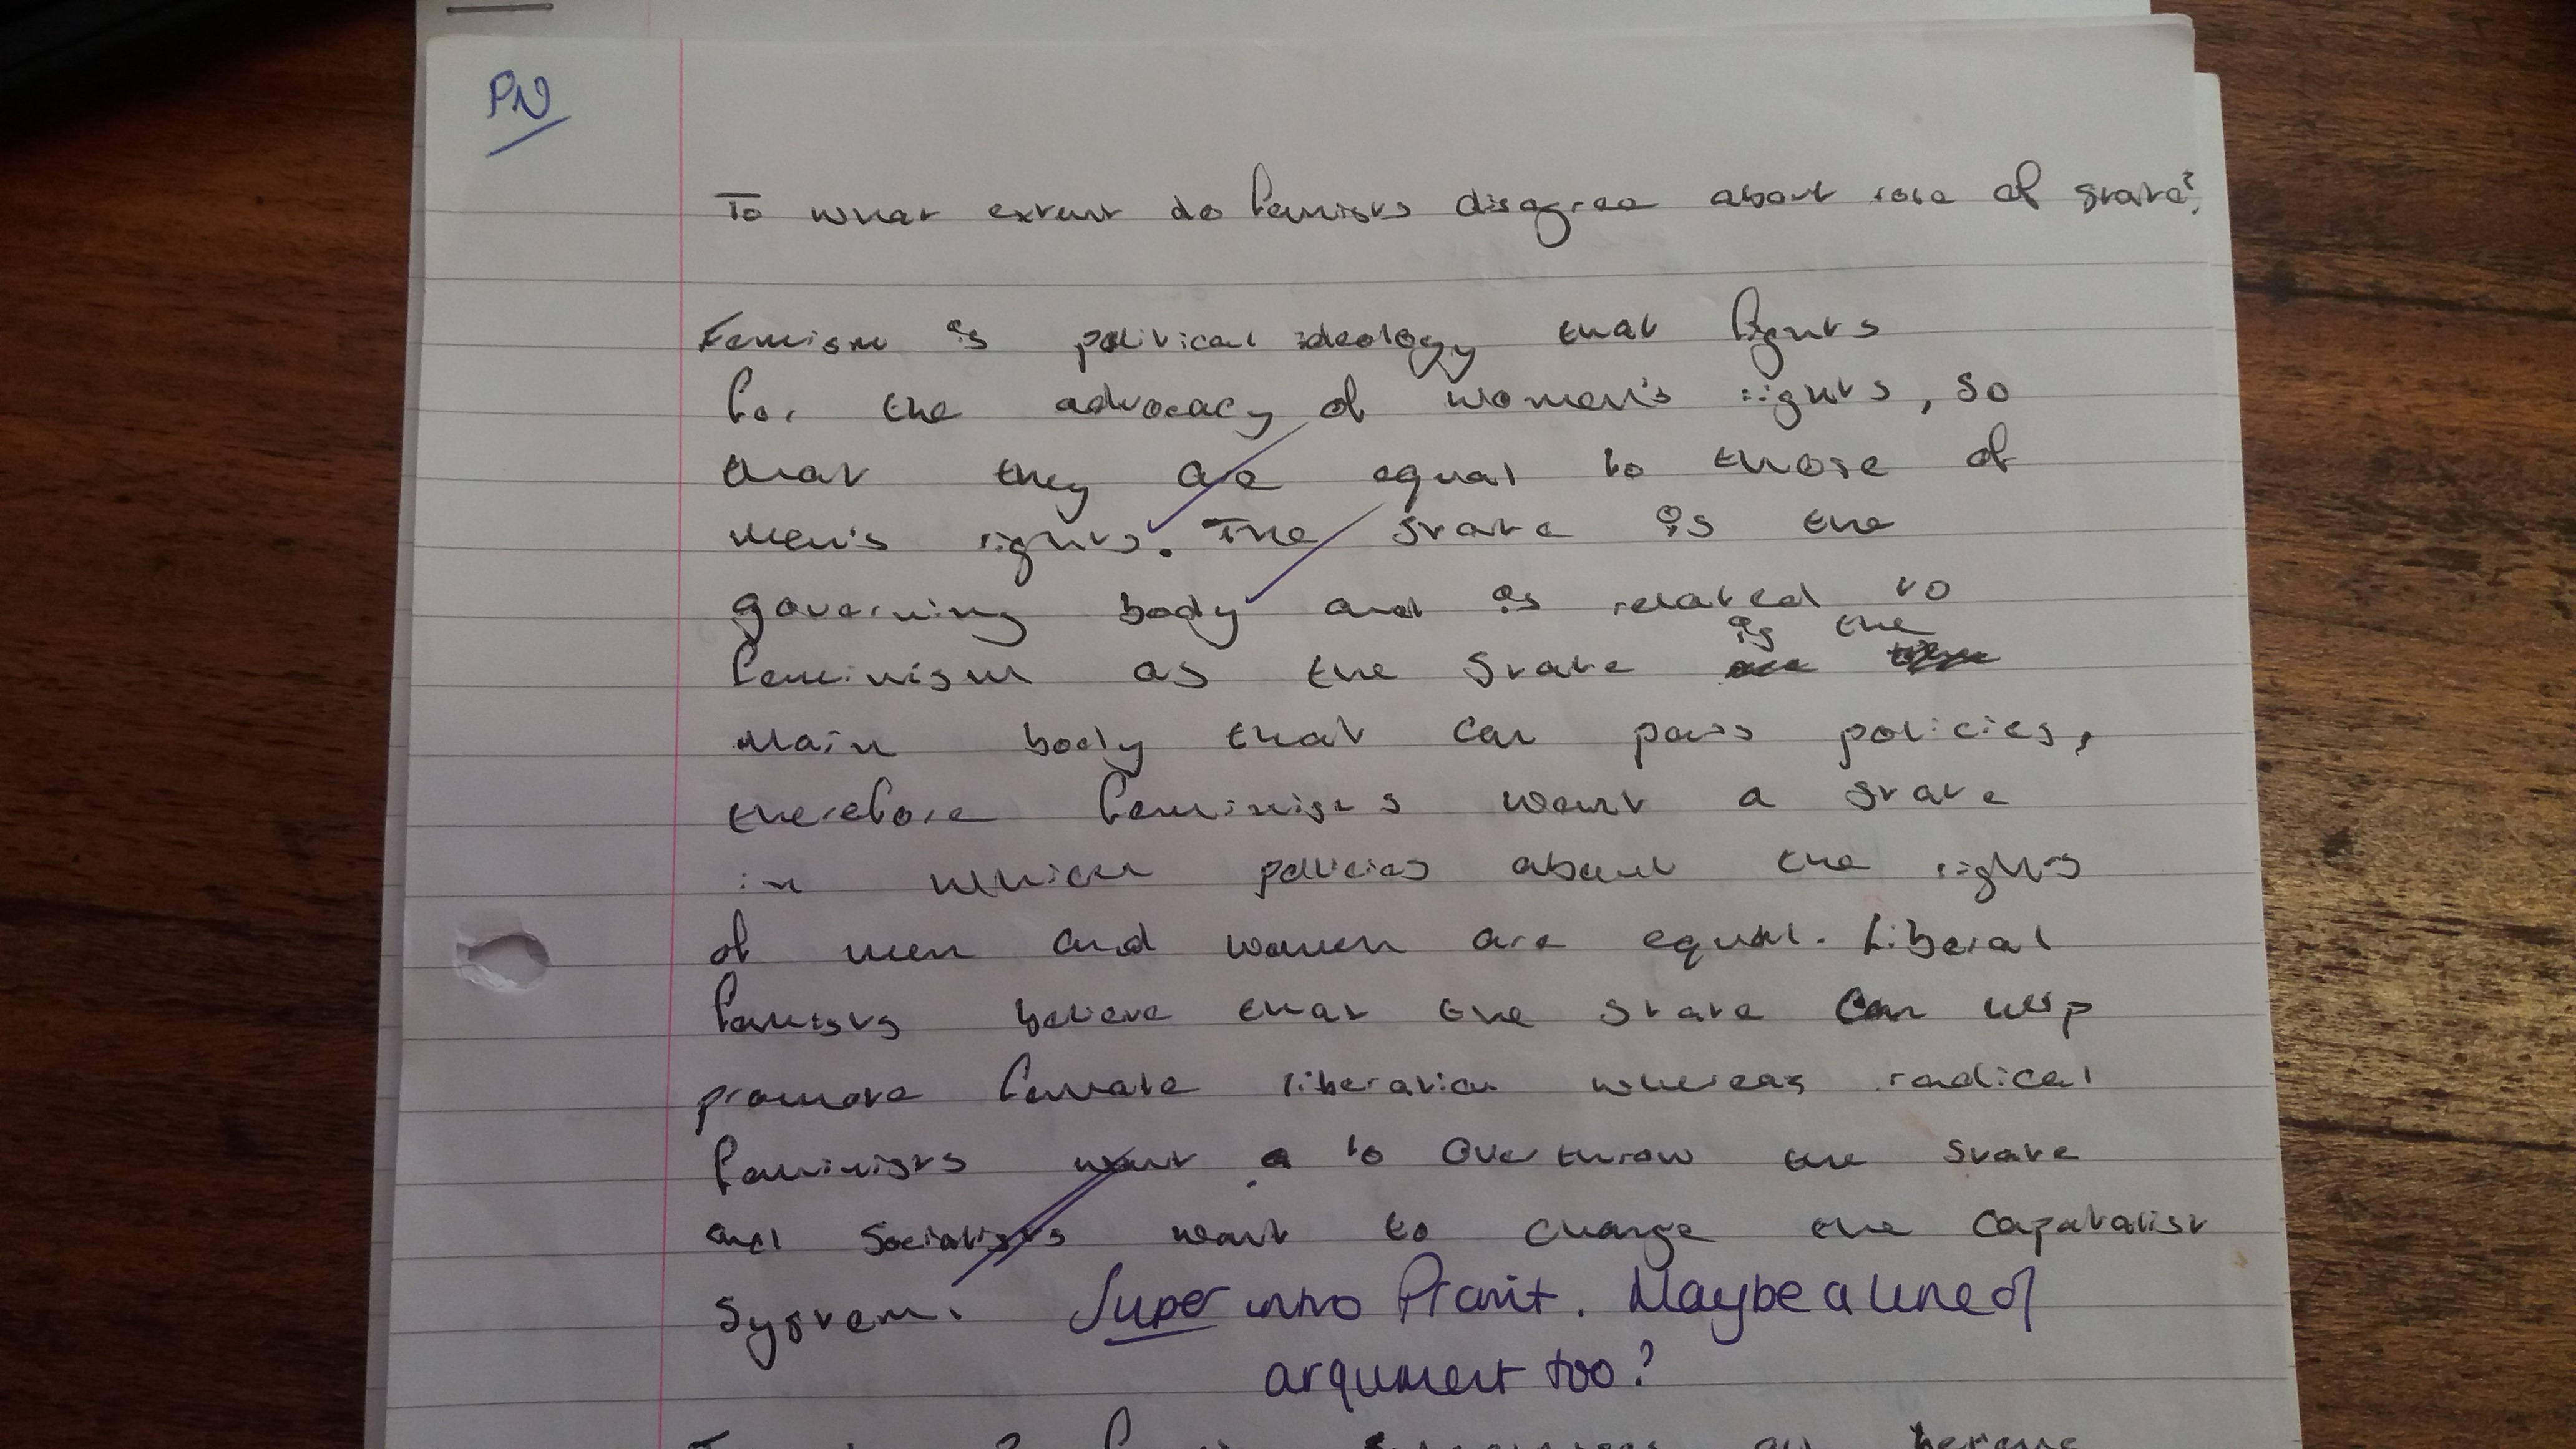 PN
To what extent do femists disagree about role of state?
Femism is political ideology that fights
for the advocacy of women's rights, so
that they are equal to those of
men's rights. The state is the
governing body and is related to
is the
feminism as the state
main body that can pass policies,
therefore feminists want a state
in which policies about the rights
of men and women are equal. Liberal
femists believe that the state can help
promote female liberation whereas radical
feminists want to overthrow the state
and Socialists want to change the capatalist
system.
Super intro Pranit. Maybe a line of
argument too?